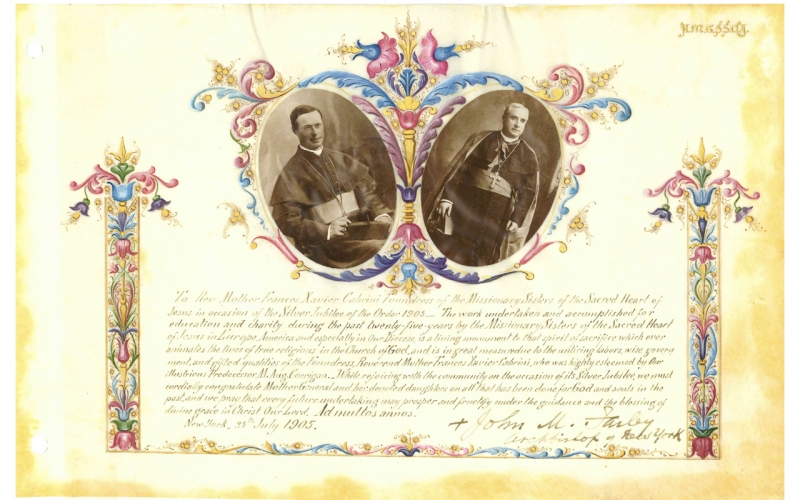 To Rev. Mother Frances Xavier Cabrini Foundress of the Missionary Sisters of the Sacred Heart of
Jesus in occasion of the Silver Jubilee of the Order: 1905 — The work undertaken and accomplished for
education and charity during the past twenty-five years by the Missionary Sisters of the Sacred Heart
of Jesus in Europe, America, and especially in Our Diocese, is a living monument to that spirit of sacrifice which ever
animates the lives of true religious in the Church of God, and is in great measure due to the untiring labors, wise govern
ment, and gifted qualities of the Foundress, Reverend Mother Francis Xavier Cabrini, who was highly esteemed by Our
illustrious Predecessor M. Aug. Corrigan. — While rejoicing with the community on the occasion of its Silver Jubilee, we most
cordially congratulate Mother General and her devoted daughters on all that has been done for God and souls in the
past, and we pray that every future undertaking may prosper and fructify under the guidance and the blessing of
divine grace in Christ Our Lord. Ad multos annos.
New York, 25th July 1905.
+ John M. Farley
Archbishop of New York